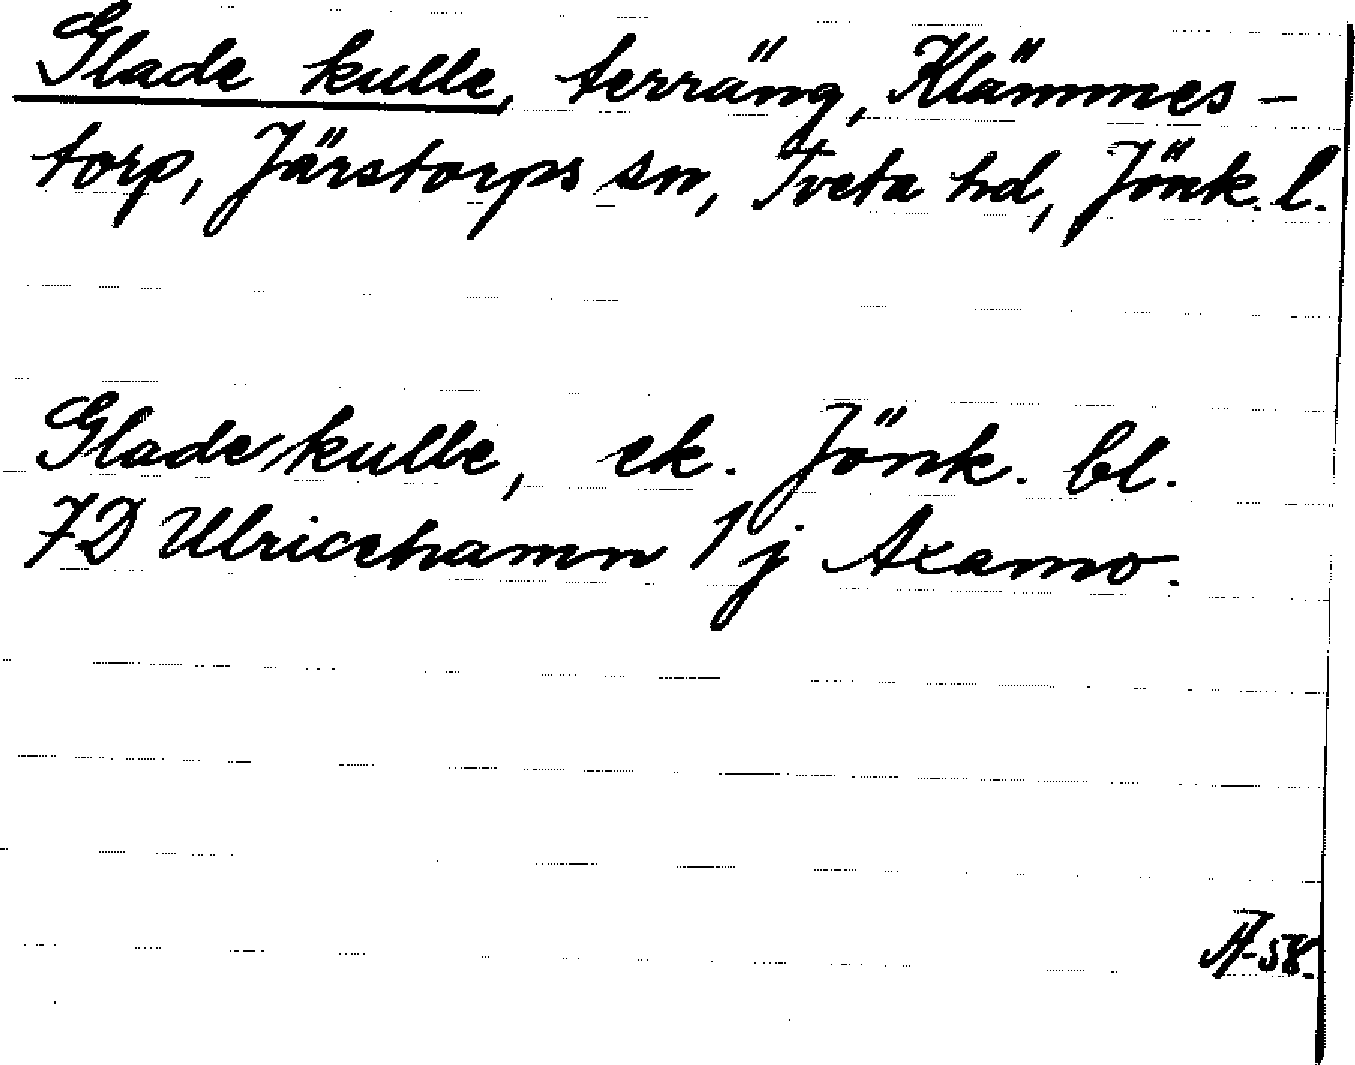 Glade kulle, terräng, Klämmes-
torp, Järstorps sn, Tveta hd, Jönk. l.
Glade kulle, ek. Jönk. bl.
7D Ulricehamn 1 j Axamo.
-58.